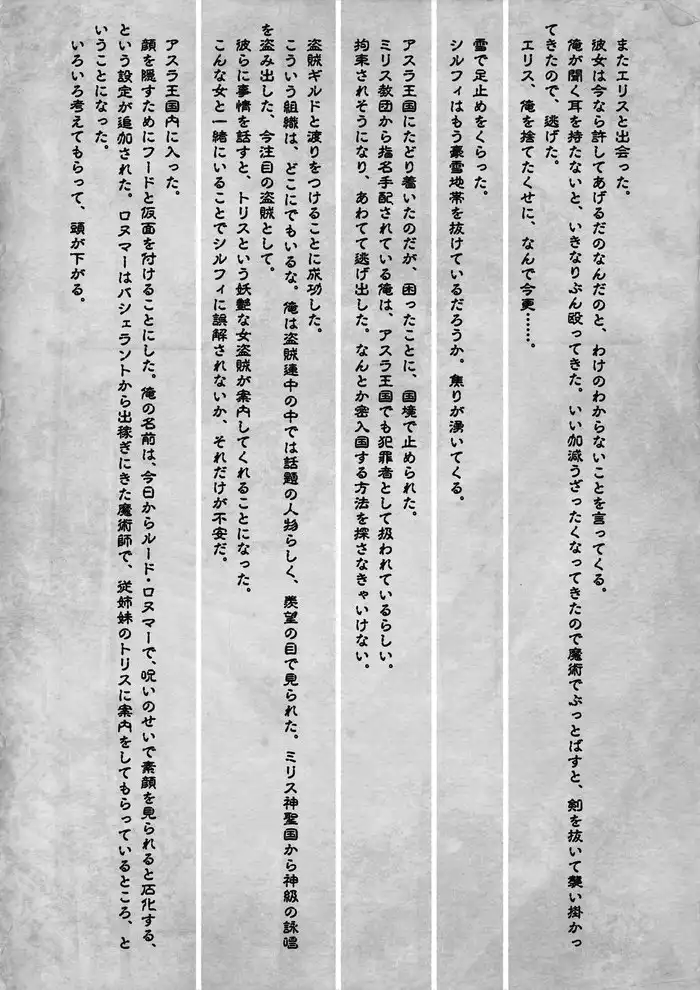 またエリスと出会った。
彼女は今なら許してあげるだのなんだのと、わけのわからないことを言ってくる。
俺が聞く耳を持たないと、いきなりぶん殴ってきた。いい加減うざったくなってきたので魔術でぶっとばすと、剣を抜いて襲い掛かっ
てきたので、逃げた。
エリス、俺を捨てたくせに、なんで今更……。
雪で足止めをくらった。
シルフィはもう豪雪地帯を抜けているだろうか。焦りが湧いてくる。
アスラ王国にたどり着いたのだが、困ったことに、国境で止められた。
ミリス教団から指名手配されている俺は、アスラ王国でも犯罪者として扱われているらしい。
拘束されそうになり、あわてて逃げ出した。なんとか密入国する方法を探さなきゃいけない。
盗賊ギルドと渡りをつけることに成功した。
こういう組織は、どこにでもいるな。俺は盗賊連中の中では話題の人物らしく、羨望の目で見られた。ミリス神聖国から神級の詠唱
を盗み出した、今注目の盗賊として。
彼らに事情を話すと、トリスという妖艶な女盗賊が案内してくれることになった。
こんな女と一緒にいることでシルフィに誤解されないか、それだけが不安だ。
アスラ王国内に入った。
顔を隠すためにフードと仮面を付けることにした。俺の名前は、今日からルード・ロヌマーで、呪いのせいで素顔を見られると石化する、
という設定が追加された。ロヌマーはバシェラントから出稼ぎにきた魔術師で、従姉妹のトリスに案内をしてもらっているところ、と
いうことになった。
いろいろ考えてもらって、頭が下がる。